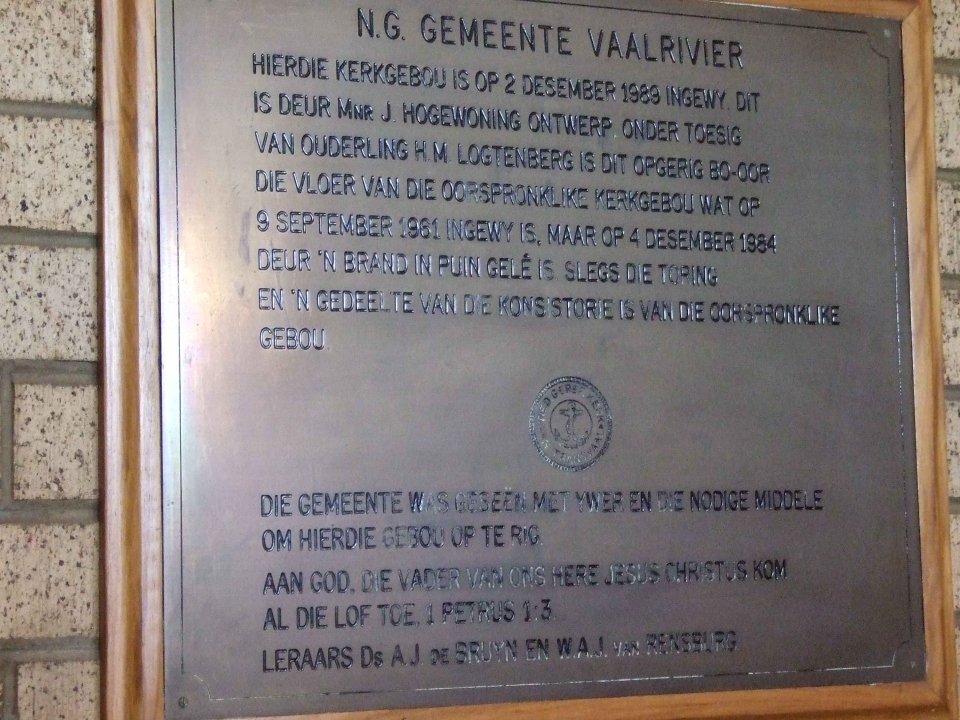 N.G. GEMEENTE VAALRIVIER
HIERDIE KERKGEBOU IS OP 2 DESEMBER 1989 INGEWY. DIT
IS DEUR MNR J. HOGEWONING ONTWERP. ONDER TOESIG
VAN OUDERLING H.M. LOGTENBERG IS DIT OPGERIG BO-OOR
DIE VLOER VAN DIE OORSPRONKLIKE KERKGEBOU WAT OP
9 SEPTEMBER 1961 INGEWY IS, MAAR OP 4 DESEMBER 1984
DEUR 'N BRAND IN PUIN GELÉ IS. SLEGS DIE TORING
EN 'N GEDEELTE VAN DIE KONSISTORIE IS VAN DIE OORSPRONKLIKE
GEBOU.
NED GEREF KERK
DIE GEMEENTE WAS GESEËN MET YWER EN DIE NODIGE MIDDELE
OM HIERDIE GEBOU OP TE RIG.
AAN GOD, DIE VADER VAN ONS HERE JESUS CHRISTUS KOM
AL DIE LOF TOE, 1 PETRUS 1:3.
LERAARS DS A.J. DE BRUYN EN W.A.J. VAN RENSBURG